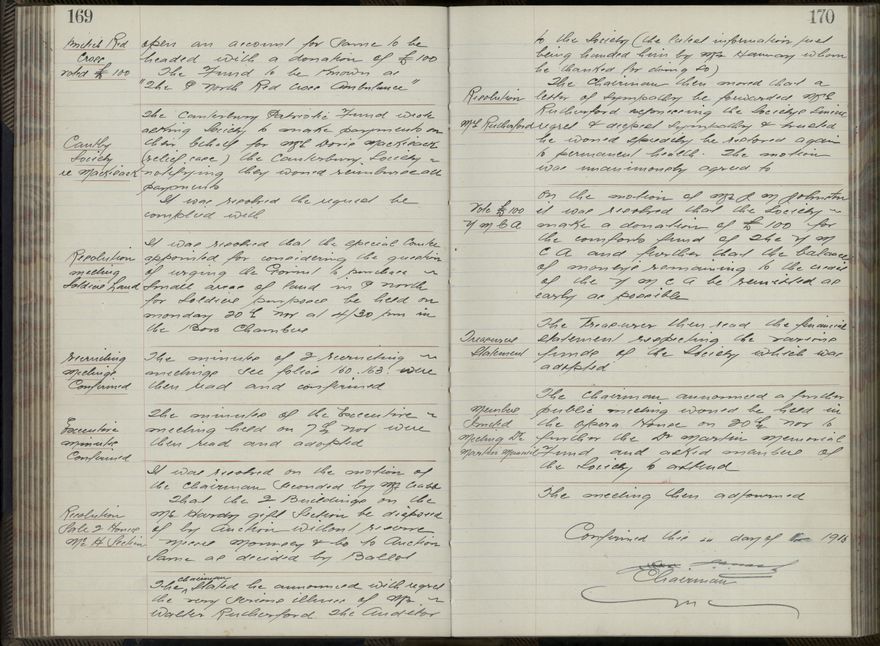 169
British Red
Cross
voted £100
open an account for same to be
headed with a donation of £100
The Fund to be known as
"The P North Red Cross Ambulance"
Cantby
Society
re Mackieack
The Canterbury Patriotic Fund wrote
asking Society to make payments on
their behalf for Mrs Doris Mackieack
(relief case) the Canterbury Society
notifying they would reimburse all
payments
It was resolved the request be
complied with
Resolution
meeting
Soldiers Land
It was resolved that the special Comtee
appointed for considering the question
of urging the Govmt to purchase
small areas of land in P North
for Soldiers purposes be held on
Monday 20th Nov at 4/30 pm in
the Boro Chambers
Recruiting
Meetings
Confirmed
The minutes of 2 recruiting
meetings see folios 160.163. were
then read and confirmed
Executive
minutes
Confirmed
The minutes of the Executive
meeting held on 7th Nov were
then read and adopted
Resolution
Sale 2 Houses
Mr H Section
It was resolved on the motion of
the Chairman seconded by Mr
That the 2 Buildings on the
Mr Hardy gift Section be disposed
of by Auction without reserve
Messrs & Co to Auction
same as decided by Ballot
The chairman stated he announced with regret
the very serious illness of Mr
Walter Rutherford the Auditor
170
to the Society (the latest information just
being handed him by Mr Hannay whom
he thanked for doing so)
Resolution
Mr Rutherford
The Chairman then moved that a
letter of sympathy be forwarded Mr
Rutherford expressing the Societys sincere
regret & deepest sympathy & trusted
he would speedily be restored again
to permanent health. The motion
was unanimously agreed to
Vote £100
Y M C A
On the motion of Mr J M Johnston
it was resolved that the Society
make a donation of £100 for
the comforts fund of the Y M
C A and further that the balance
of moneys remaining to the credit
of the Y M C A be remitted as
early as possible
Treasurers
Statement
The Treasurer then read the financial
statement respecting the various
funds of the Society which was
adopted
Members
Invited
Meeting Dr
Martin Memorial
The Chairman announced a further
public meeting would be held in
the Opera House on 20th Nov to
further the Dr Martin Memorial
Fund and asked members of
the Society to attend
The meeting then adjourned
Confirmed this day of 1916
Chairman